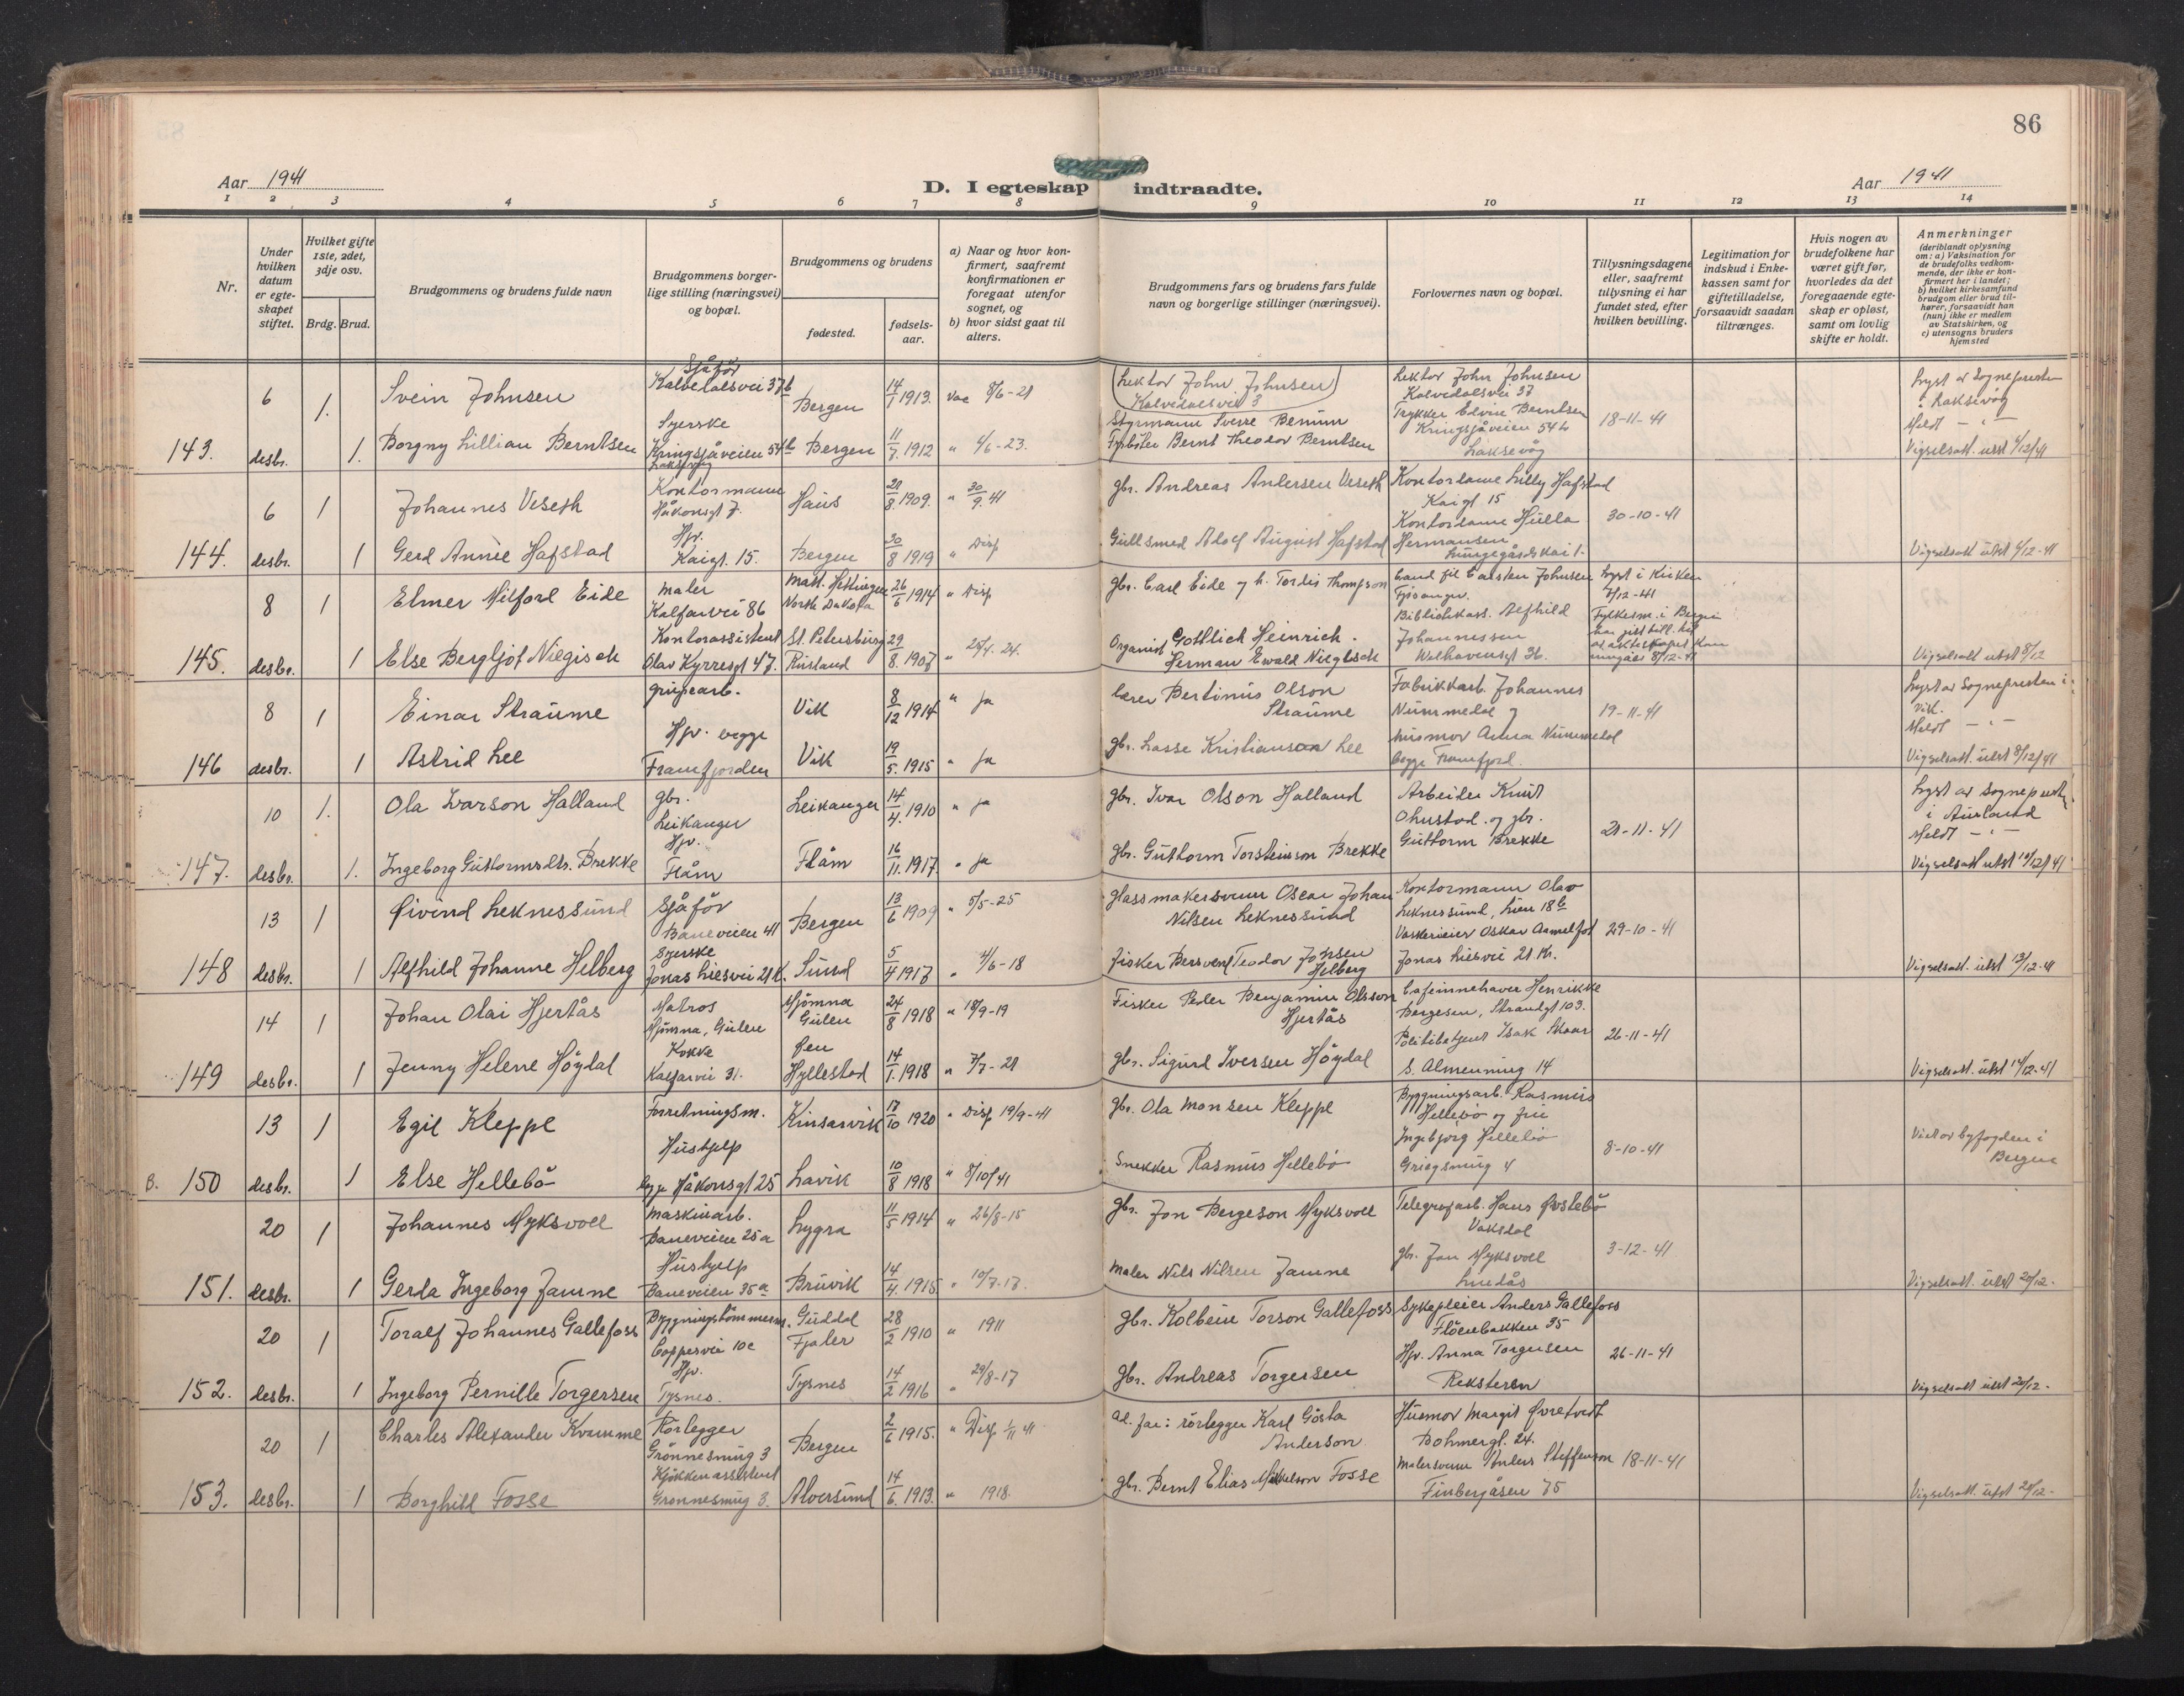 86
Aar 1941
D. I egteskap indtraadte.
Aar 1941
1 2 3 4 5 6 7 8 9 10 11 12 13 14
Nr.
Under hvilken datum er egteskapet stiftet.
Hvilket gifte 1ste, 2det, 3dje osv.
Brdg. Brud.
Brudgommens og brudens fulde navn
Brudgommens borgerlige stilling (næringsvei) og bopæl.
Brudgommens og brudens
fødested.
fødselsaar.
a) Naar og hvor konfirmert, saafremt konfirmationen er foregaat utenfor sognet, og
b) hvor sidst gaat til alters.
Brudgommens fars og brudens fars fulde navn og borgerlige stillinger (næringsvei).
Forlovernes navn og bopæl.
Tillysningsdagene eller, saafremt tillysning ei har fundet sted, efter hvilken bevilling.
Legitimation for indskud i Enkekassen samt for giftetilladelse, forsaavidt saadan tiltrænges.
Hvis nogen av brudefolkene har været gift før, hvorledes da det foregaaende egteskap er opløst, samt om lovlig skifte er holdt.
Anmerkninger
(deriblandt oplysning om: a) Vaksination for de brudefolks vedkommende, der ikke er konfirmert her i landet;
b) hvilket kirkesamfund brudgom eller brud tilhører, forsaavidt han (hun) ikke er medlem av Statskirken, og
c) utensogns bruders hjemsted
6 1. Svein Johnsen Sjåfør Kalvedalsvei 37b Bergen 14/1 1913. vac 8/6-21 Lektor John Johnsen Kalvedalsvei 3 Lektor John Johnsen Kalvedalsvei 37
Styrmann Sverre Trykker Edvin Berntsen Kringsjåveien 54b Laksevåg 18-11-41 Lyst av Sognepresten i Laksevåg
Meldt - " -
143. desbr. 1. Borgny Lillian Berntsen Syerske Kringsjåveien 54b Laksevåg Bergen 11/7. 1912 " 4/6-23. Fyrbøter Bernt Theodor Berntsen Vigselsatt. utst 6/12/41
6 1 Johannes Veseth Kontormann Håkonsgt 7. Haus 21/8. 1909. " 30/9. 41 gbr. Andreas Andersen Veseth Kontordame Lilly Hafstad Kaigt 15
144. desbr. 1 Gerd Annie Hafstad Hjv. Kaigt. 15. Bergen 30/8 1919 " Disp Gullsmed Adolf August Hafstad Kontordame Hulla Hermansen Lungegårdskai 1. 30-10-41 Vigselsatt utst 6/12-41
8 1 Elmer Milford Eide maler Kalfarvei 86 North Dakota 26/6 1914 " Disp gbr. Carl Eide og h. Tordis Thompson Cand fil Carsten Johnsen Fjøsanger. Lyst i Kirken 7/12-41
145. desbr. 1 Else Bergljot Niegisch Kontorassistent Olav Kyrresgt 47. St. Petersburg Russland 29/8. 1907 " 25/4. 24. Organist Gottlich Heinrich Herman Ewald Niegisch Bibliotekass. Alfhild Johannessen Welhavensgt 36. Fylkesm. i Bergen 8/12-41 Vigselsatt utst 8/12
8 1 Einar Straume grupearb. Vik 8/12 1914 " ja lærer Bertinius Olson Straume Fabrikkarb. Johannes Nummedal og 19-11-41 Lyst av Sognepresten i Vik.
Meldt - " -
146 desbr. 1 Astrid Lee Hjv. begge Framfjorden Vik 19/5. 1915 " ja gbr. Lasse Kristianson Lee husmor Anna Nummedal begge Framfjord. Vigselsatt. utst 8/12/41
10 1. Ola Ivarson Halland gbr. Leikanger Leikanger 14/4. 1910 " ja gbr. Ivar Olson Halland Arbeider Knut Ohnstad og gbr. Guttorm Brekke 21-11-41 Lyst av Sognepresten i Aurland
Meldt - " -
147. desbr. 1. Ingeborg Guttormsdtr. Brekke Hjv. Flåm Flåm 16/11. 1917. " ja gbr. Guttorm Torsteinson Brekke Vigselsatt utst 10/12/41
13 1 Øivind Leknessund Sjåfør Baneveien 41 Bergen 13/6 1909 " 5/5-25 Glassmakersvenn Oscar Johan Nilsen Leknessund Kontormann Olav Leknessund, Lien 18b
148 desbr. 1 Alfhild Johanne Helberg Syerske Jonas Liesvei 21 K. Sund 5/4 1917 " 4/6-18 Fisker Bersvend Teodor Johnsen Helberg Vaskerieier Oskar Aamelfot Jonas Liesvei 21 K. 29-10-41 Vigselsatt. utst 13/12-41
14 1 Johan Olai Hjertås Matros Mjømna, Gulen Mjømna Gulen 24/8 1918 " 18/9-19 Fisker Peder Benjamin Olsson Hjertås Cafeinnehaver Henrikke Bergesen, Strandgt 103.
149 desbr. 1 Jenny Helene Høydal Kokke Kalfarvei 31. Øen Hyllestad 14/1. 1918 " 7/7-21 gbr. Sigurd Iversen Høydal Politibetjent Isak Skaar S. Almenning 14 26-11-41 Vigselsatt. utst 14/12-41
13 1 Egil Kleppe Forretningsm. Kinsarvik 17/10 1920 " Disp 19/9-41 gbr. Ola Monsen Kleppe Bygningsarb. Rasmus Hellebø og frue
B. 150 desbr. 1 Else Hellebø Hushjelp begge Håkonsgt 25 Lavik 10/8 1918 " 8/10/41 Snekker Rasmus Hellebø Ingebjørg Hellebø Griegsmug 4 8-10-41 Viet av byfogden i Bergen
20 1 Johannes Myksvoll Maskinarb. Baneveien 25a Lygra 11/5 1914 " 26/8-15 gbr. Jon Bergeson Myksvoll Telegrafarb. Hans Øvstebø Vaksdal
151. desbr. 1 Gerda Ingeborg Jamne Hushjelp Baneveien 35a Bruvik 14/4. 1915 " 10/7-17. Maler Nils Nilsen Jamne gbr. Jon Myksvoll Lindås 3-12-41 Vigselsatt. utst 20/12-
20 1 Toralf Johannes Gallefoss Bygningstømmerm. Coppersvei 10c Guddal Fjaler 28/2 1910 " 1911 gbr. Kolbein Torson Gallefoss Sykepleier Anders Gallefoss Fløenbakken 35
152. desbr. 1 Ingeborg Pernille Torgersen Hjv. Tysnes. Tysnes 14/2 1916 " 29/8-17 gbr. Andreas Torgersen Hjv. Anna Torgersen Reksteren 26-11-41 Vigselsatt utst 20/12-
20 1 Charles Alexander Kvamme Rørlegger Grønnesmug 3 Bergen 2/6 1915. " Disp 1/11 41 Ad. far: rørlegger Karl Gösta Anderson Husmor Margit Øvretvedt Bohmergt. 24.
153. desbr. 1 Borghild Fosse Kjøkkenassistent Grønnesmug 3. Alversund 14/6. 1913. " 1918 gbr. Bernt Elias Mikkelson Fosse Malersvenn Anders Steffenson Finbergåsen 75 18-11-41 Vigselsatt. utst 20/12-